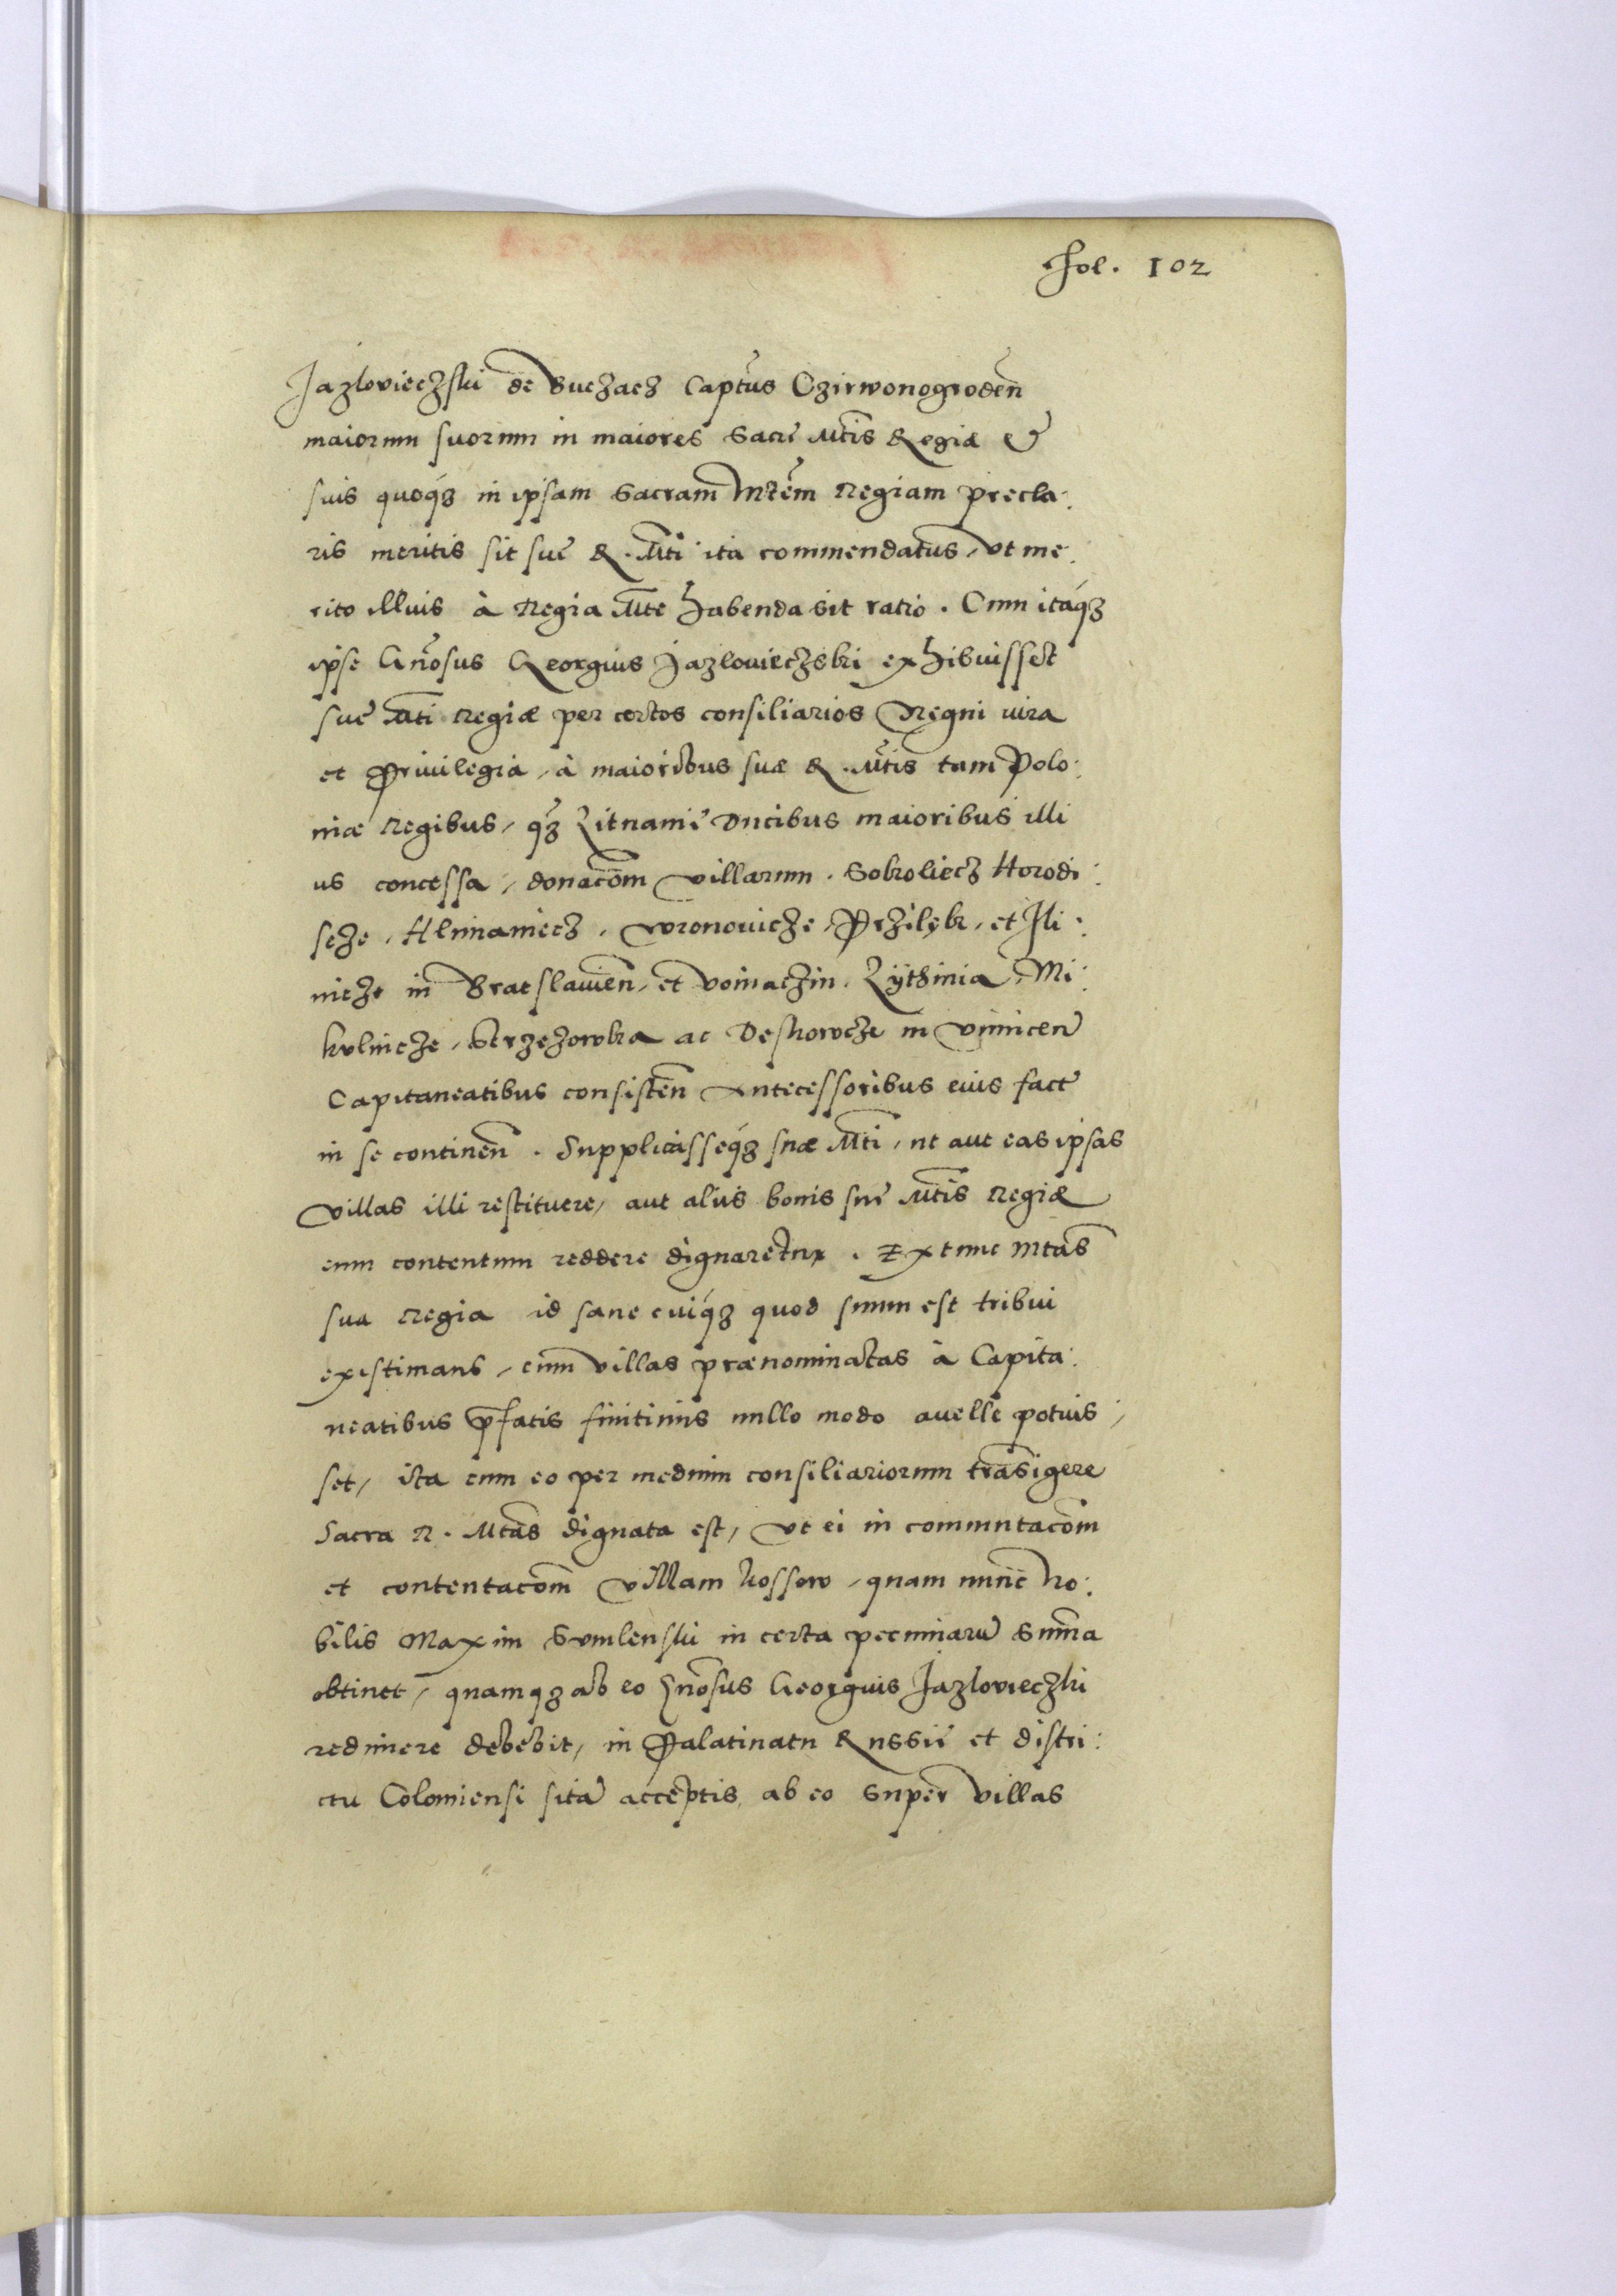 Fol. 102
Jazlovieczski de Buczacz Captũs Czirwonogrodeñ
maiorum suorum in maiores Sacrę Mt̃is Regiæ et
suis quoq́z in ipsam Sacram Mtẽm Regiam precla:
ris meritis sit suę R. Mt̃i ita commendatus, vt me:
rito illius à Regia Mt̃e habenda sit ratio. Cum itaq́z
ipse Gñosus Georgius Jazlovieczski exhibuisset
suę Mt̃i Regiæ per certos consiliarios Regni iura
et Privilegia, à maioribus suæ R. Mt̃is tam Polo:
niæ Regibus, q̃z Litvanię Ducibus maioribus illi
us concessa, donacõm villarum. Sokoliecz Horodi:
scze, Hlinaniecz, Woronovicze, Przilęk, et Ili:
nicze in Braeslavieñ, et Voinaczin. Zythinia, Mi:
kulincze, Strzezowka ac Deskowcze in Vinniceñ
Capitaneatibus consisteñ Antecessoribus eius fact̃
in se contineñ. Supplicasseq́z suæ Mt̃i, ut aut eas ipsas
villas illi restituere, aut aliis bonis suę Mt̃is Regiæ
eum contentum reddere dignaretur. Ex tunc Mtãs
sua Regia id sane cuiq́z quod suum est tribui
existimans, cum villas prænominatas à Capita:
neatibus p̃fatis finitimis nullo modo avelle potuis,
set, ita cum eo per medium consiliariorum trãsigere
Sacra R. Mtãs dignata est, vt ei in commutacõm
et contentacõm villam Kossow, quam nunc No:
bilis Maxim Sumlenski in certa pecuniarũ Sum̃a
obtinet, quamqz ab eo Gñosus Georgius Jazlovieczki
redimere debebit, in Palatinatu Russię et distri:
ctu Colomiensi sitã acceptis ab eo super villas